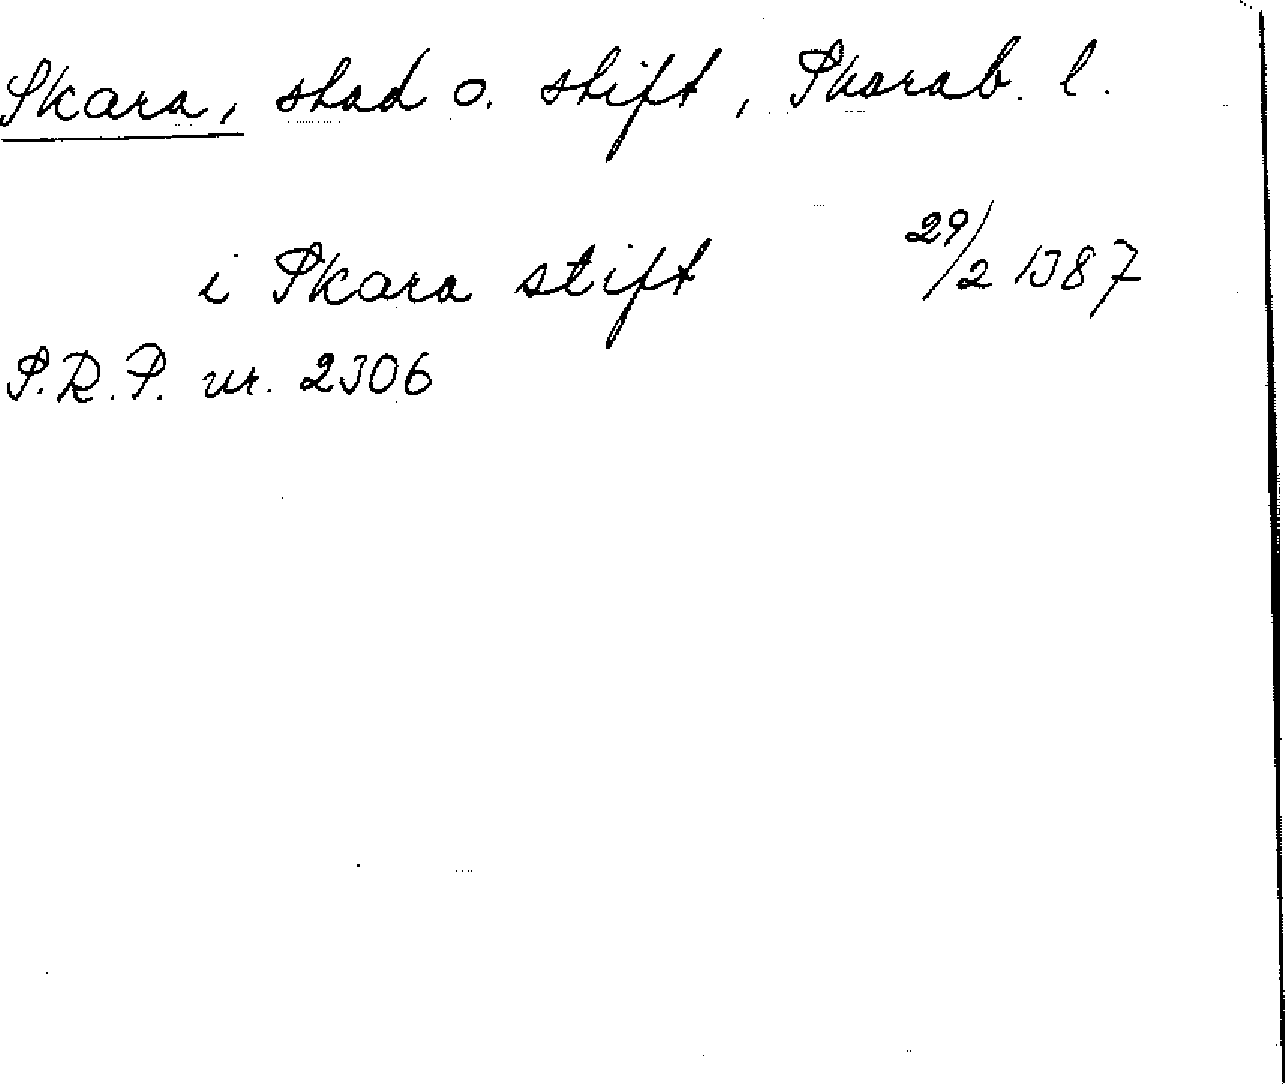 Skara, stad o. stift, Skarab. l.
i Skara stift 29/2 1387
S.R.P. nr. 2306